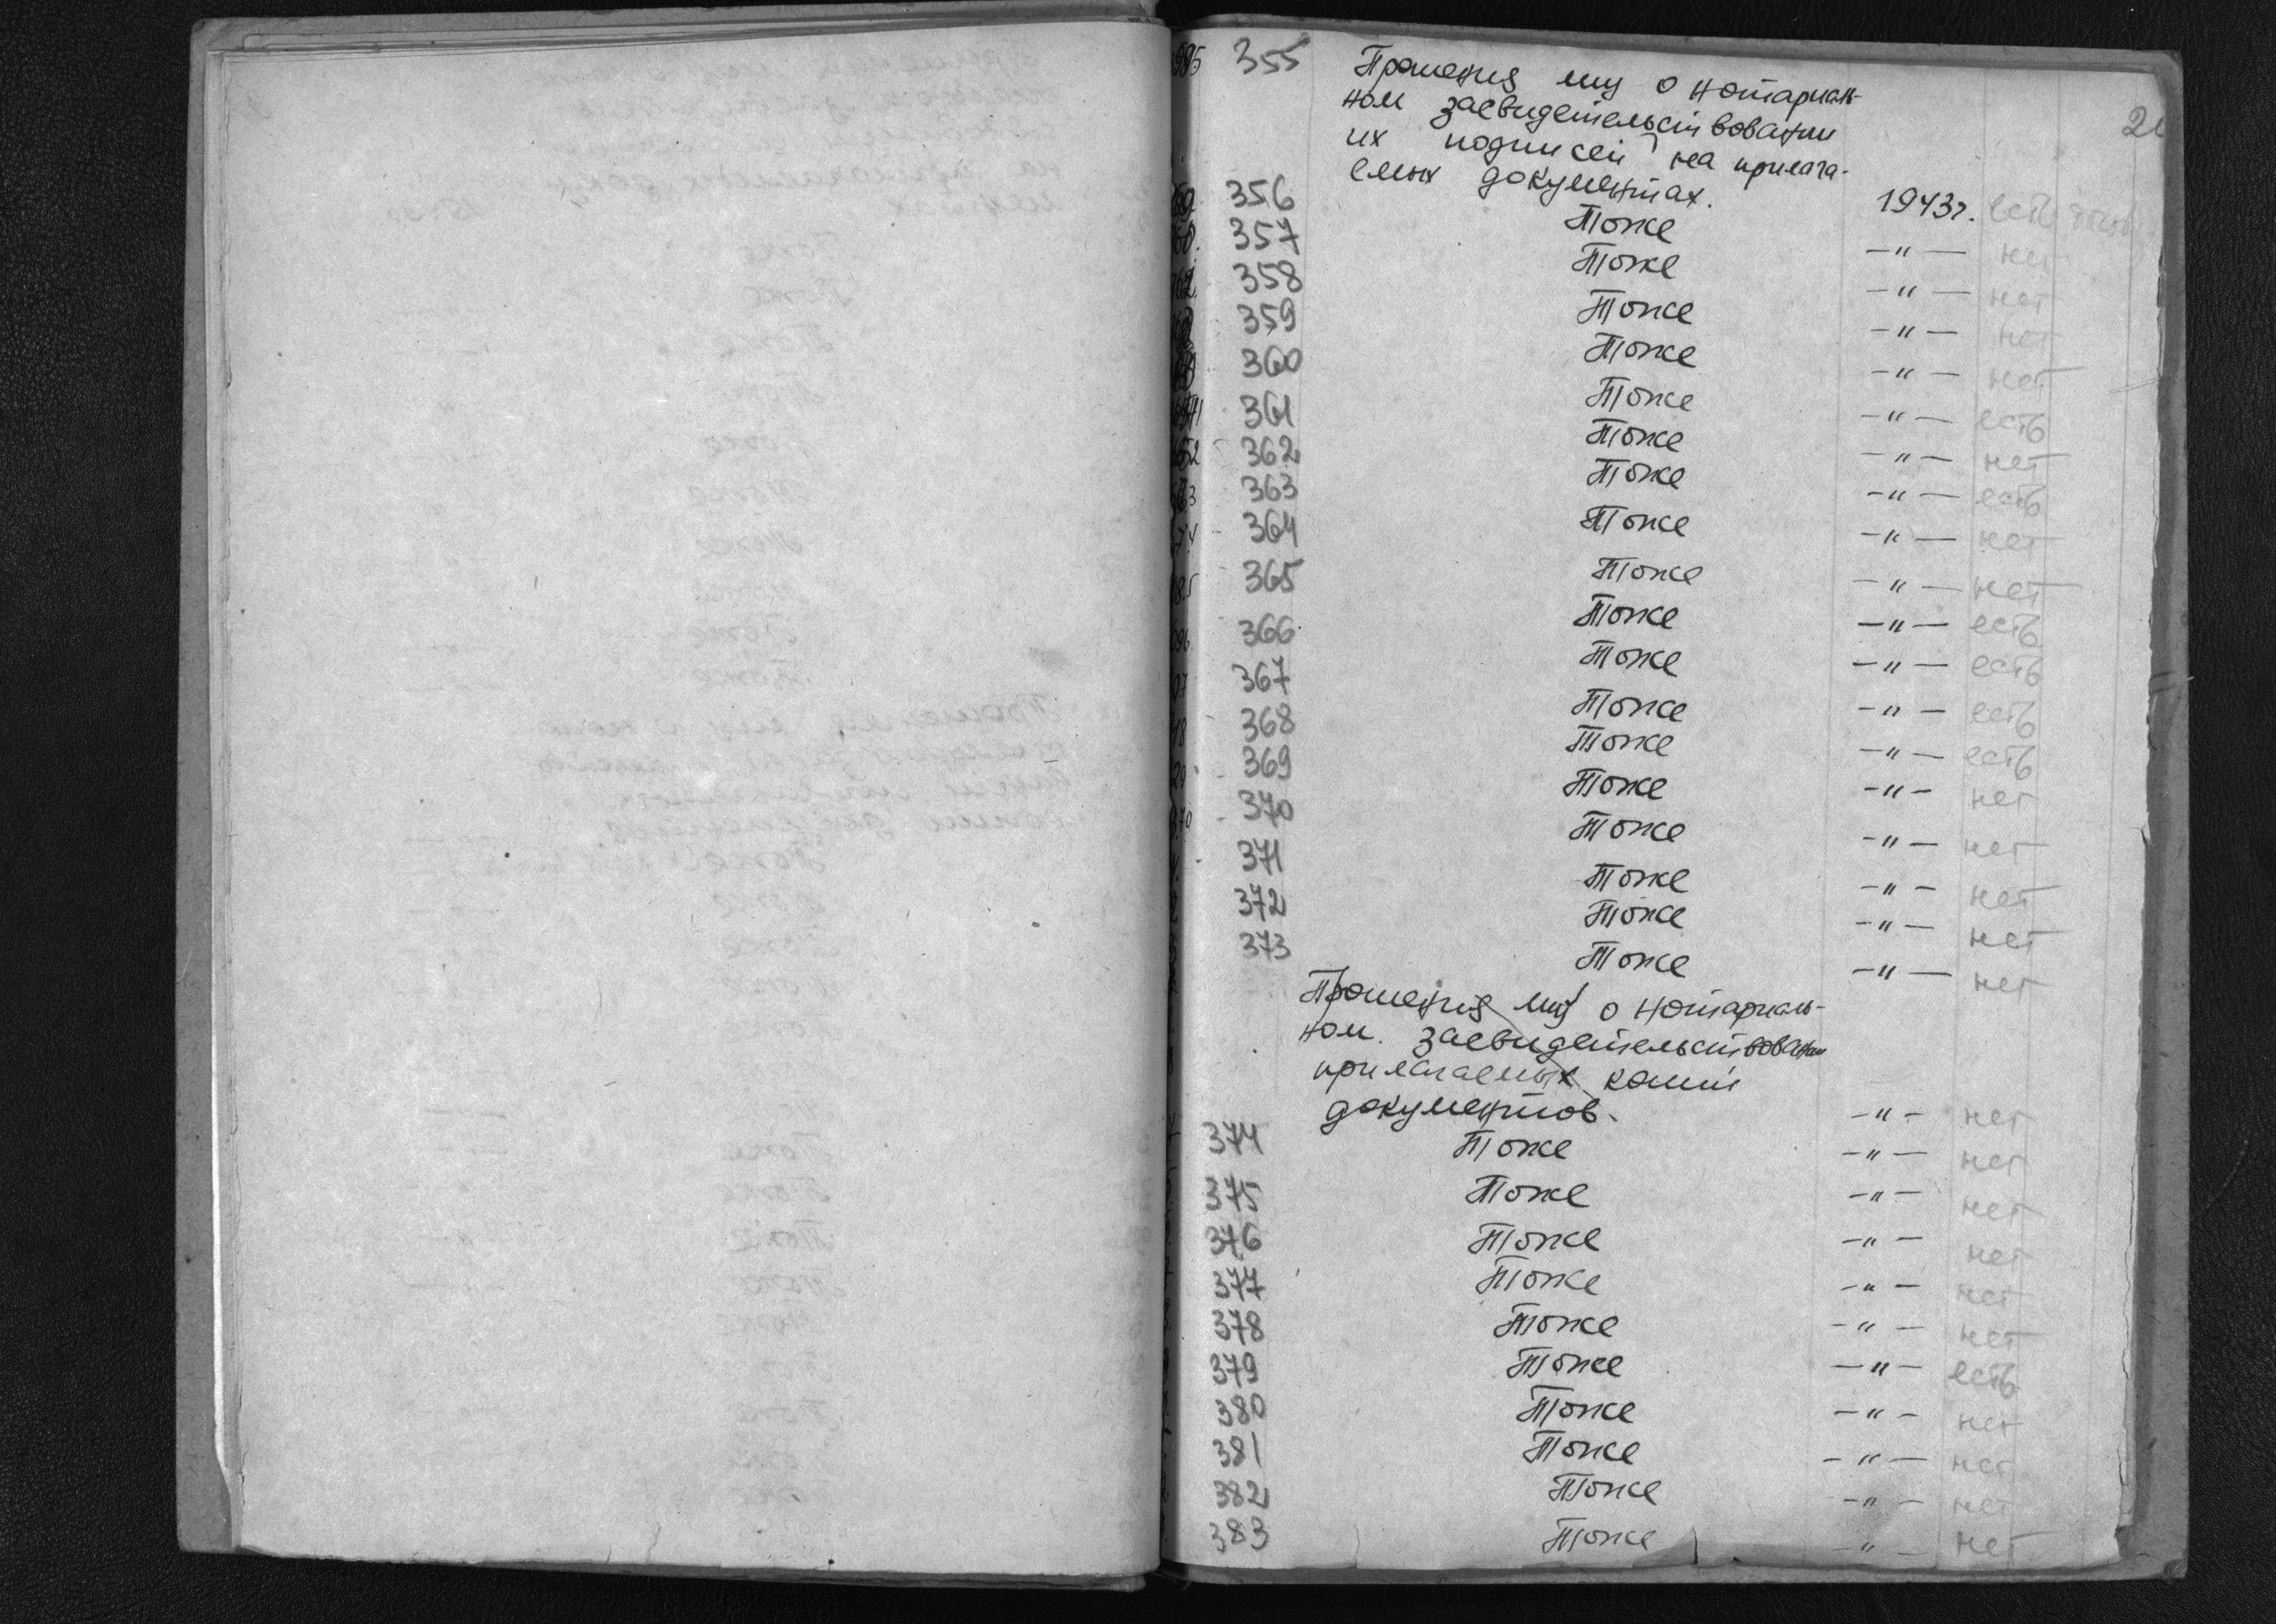 355 Прошения лиц о нотариаль-
ном засвидетельствовании
их подписей на прилага-
емых документах. 1943г. есть
356 Тоже —"— нет
357 Тоже —"— нет
358 Тоже —"— нет
359 Тоже —"— нет
360 Тоже —"— есть
361 Тоже —"— нет
362 Тоже —"— есть
363 Тоже —"— нет
364 Тоже —"— нет
365 Тоже —"— есть
366 Тоже —"— есть
367 Тоже —"— есть
368 Тоже —"— есть
369 Тоже —"— нет
370 Тоже —"— нет
371 Тоже —"— нет
372 Тоже —"— нет
373 Тоже —"— нет
Прошения лиц о нотариаль-
ном засвидетельствовании
прилагаемых копий
документов. —"— нет
374 Тоже —"— нет
375 Тоже —"— нет
376 Тоже —"— нет
377 Тоже —"— нет
378 Тоже —"— нет
379 Тоже —"— есть
380 Тоже —"— нет
381 Тоже —"— нет
382 Тоже —"— нет
383 Тоже —"— нет